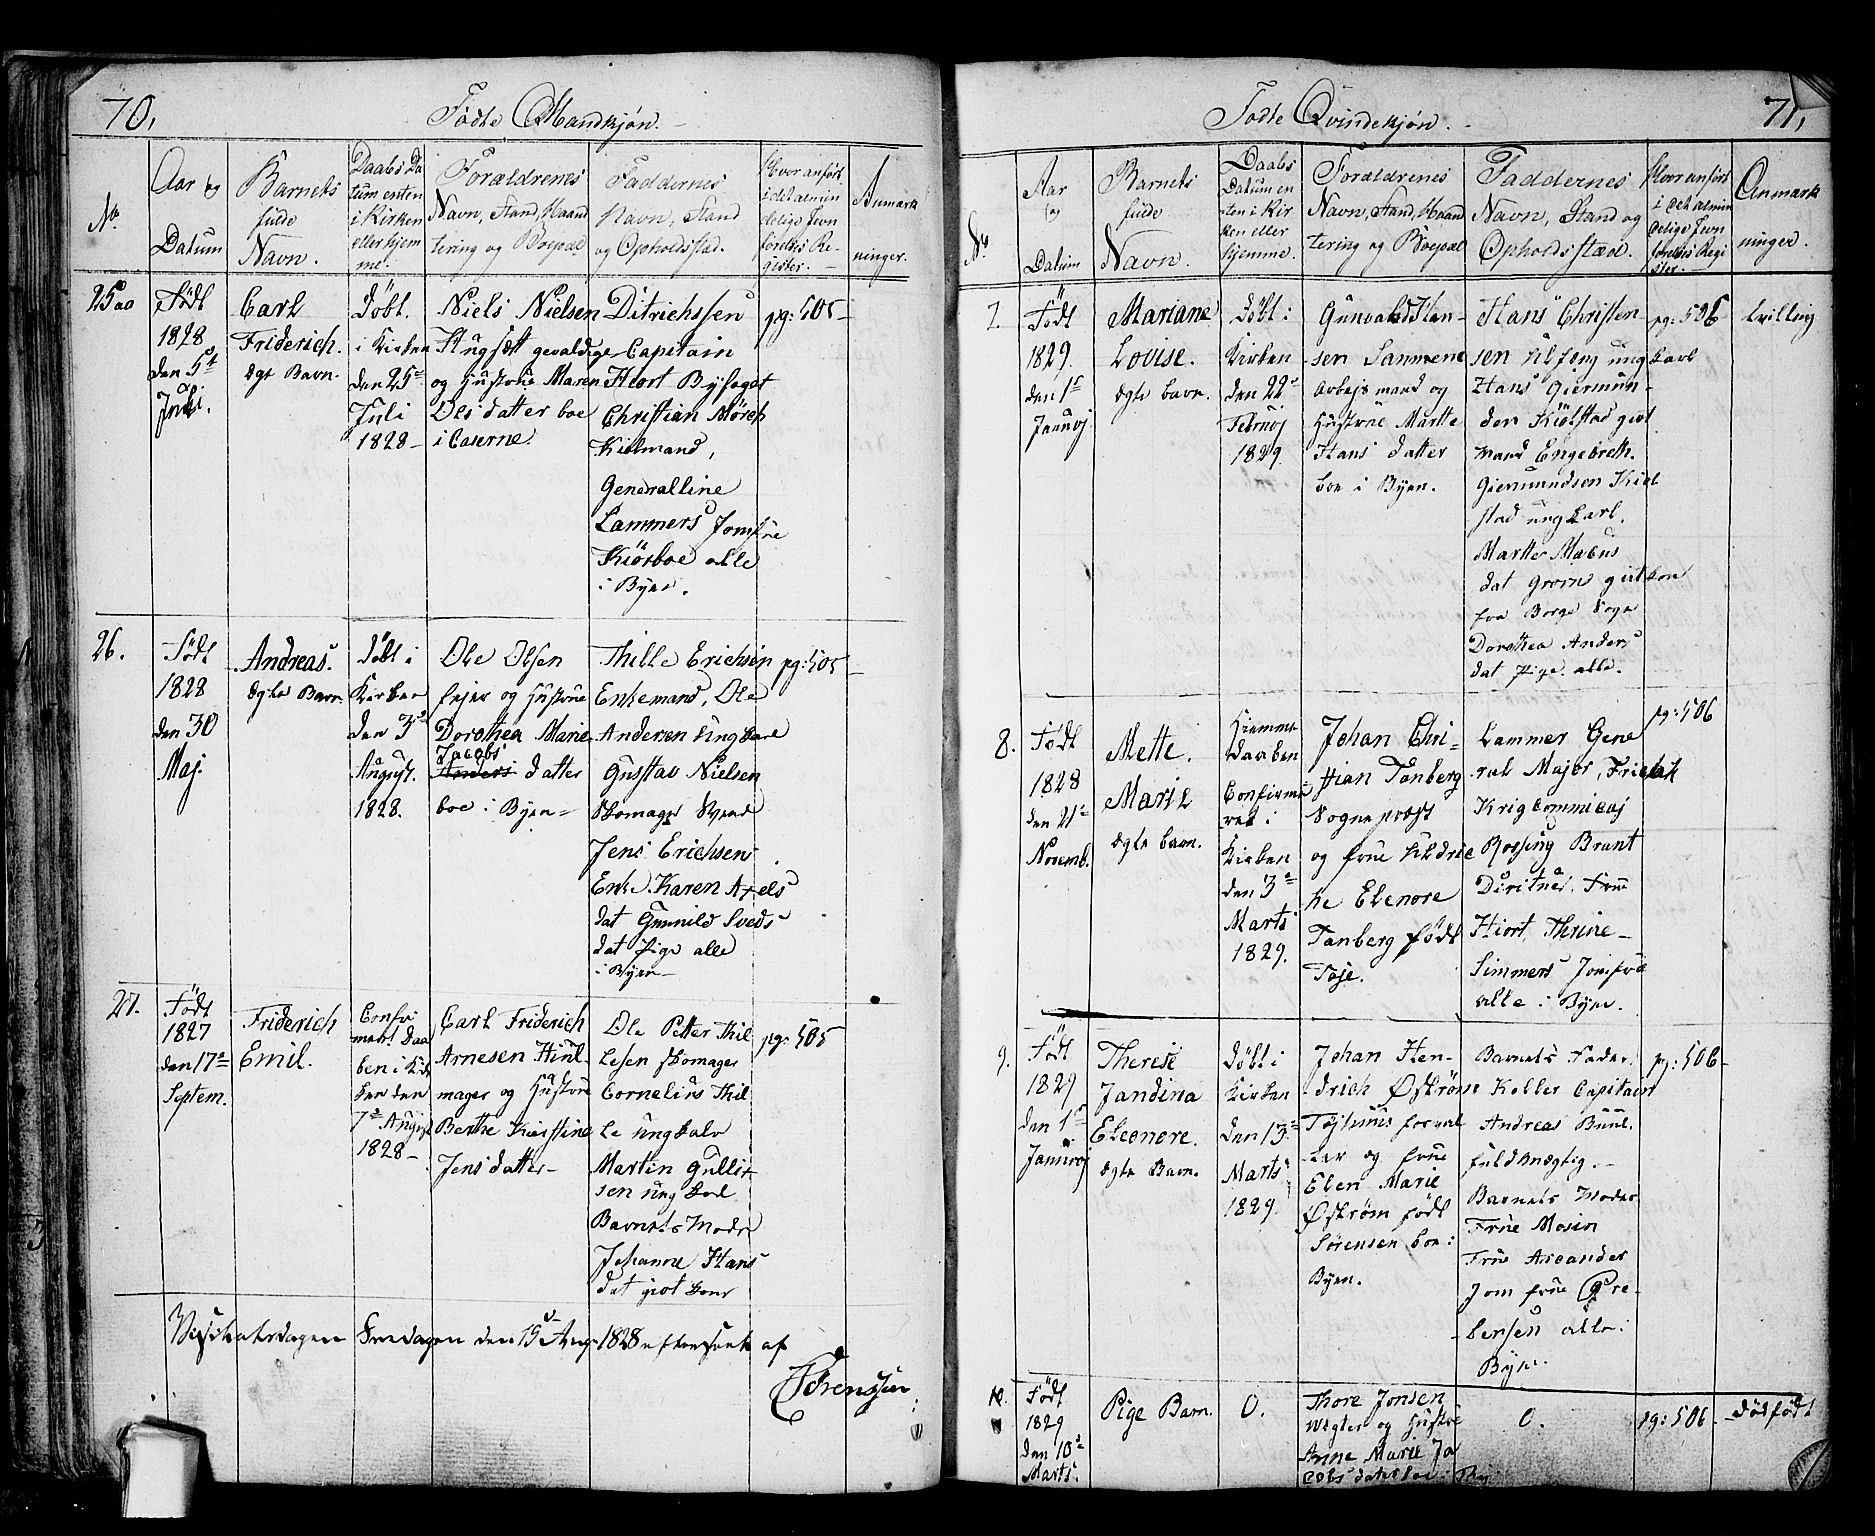 70,
Fødte Mandkjøn.
No.
Aar og
Datum
Barnets
fulde
Navn.
Daabs Da
tum enten
i Kirken
eller hjem
me.
Forældrenes
Navn, Stand, Haand
tering og Boepæl
Faddernes
Navn, Stand
og Opholdsstad.
Hvor anført
i det almin
delige Jevn
førelses Re-
gister.
Anmærk
ninger.
25
Født
1828
den 5te
Juli.
Carl
Friderich.
ægte Barn.
Døbt.
i Kirken
den 25de
Juli
1828
Niels Nielsen
gevaldiger
og Hustrue Maren
Ols datter boe
i Caserne
Ditrichssen
Capitain
Hiort Byfoget
Christian Mörch
Kiølmand,
Generalline
Lammers Jomfrue
Kiörboe alle
i Byen.
pg: 505
26.
Født
1828
den 30
Maj.
Andreas.
ægte Barn
Døbt i
Kirken
den 3de
August.
1828.
Ole Olsen
fejer og Hustrue
Dorothea Marie
Jacobs
Anders datter
boe i Byen
Thille Erichsen
Enkemand, Ole
Andersen Ungkarl
Gusttav Nielsen
Skomager Svend
Jens Erichsens
Enke. Karen Axels
dat Gunnild Sveds
dat Pige alle
i Byen
pg: 505
27.
Født
1827
den 17de
Septem.
Friderich
Emil.
Confir
mert Daa
ben i Kir
ken den
7de August
1828
Carl Friderich
Arnesen Hiul
mager og Hustrue
Berthe Kirstine
Jens datter
Ole Petter Thil
lesen skomager
Cornelius Thil
le ungkarl
Martin Gullik
sen ungkarl
Barnets Moder
Johanne Hans
dat givt kone
pg: 505
Fredagen den 15de Aug. 1828 efterseet af
Sörenssen
71,
Fødte Qvindekjøn.
No
Aar
og
Datum
Barnets
fulde
Navn.
Daabs
Datum en
ten i Kir
ken eller
hjemme.
Forældrenes
Navn, Stand, Haand
tering og Boepæl
Faddernes
Navn, Stand og
Opholdsstæd.
Hvor anført
i det almin
delige Jevn
førelses Regi
ster.
Anmærk
ninger.
7.
Født
1829.
den 1ste
Januarj
Mariane
Lovise.
ægte barn.
Døbt i
Kirken
den 22de
Februarj
1829.
Gunvald Han-
sen Sannene
Arbejsmand og
Hustrue Marthe
Hans datter
boe i Byen.
Hans Christen-
sen ungkarl
Hans Giermun-
den Kiölstad givt
mand Engebreth.
Giermundsen Kiöl
stad ungkarl.
Marthe Macus
dat givt kone
fra Borge Sogn
Dorothea Anders
dat Pige. alle.
pg: 506
tvilling
8.
Født
1828
den 21de
Novemb.
Mette.
Marie
ægte barn.
Hiemme
daaben
Confirme
ret i
Kirken
den 3de
Marts
1829.
Johan Chri-
stian Tanberg
Sogneprest
og frue Uldric
ke Elenore
Tanberg født
Toje.
Lammer Gene
ral Major, Friedrik
Krigcommicarj
Rossing Brant
Diritner, Frue
Hiort, Thrine
Simmers Jomfrue
alle i Byen.
pg: 506
9.
Født
1829
den 1ste
Januarj
Therese
Jandina
Eleonore.
ægte Barn.
Døbt i
Kirken
den 13de
Marts
1829.
Johan Hen-
drich Østrøm
Tøjhuus forval
ter og frue
Elen Marie
Østrøm født
Sørensen boe i
Byen.
Barnets Fader.
Koller Capitain
Andreas Buul.
fuldmægtig.
Barnets Moder
Frue Mosin
Frue Arcander
Jomfrue Gre-
bersen alle i
Byen.
pg: 506
10.
Født
1829
den 10de
Marts.
Pige Barn.
0.
Thore Jonsen
Vægter og Hustrue
Anne Marie Ja
cobs datter boe i Byen
0.
pg: 506
dödfödt